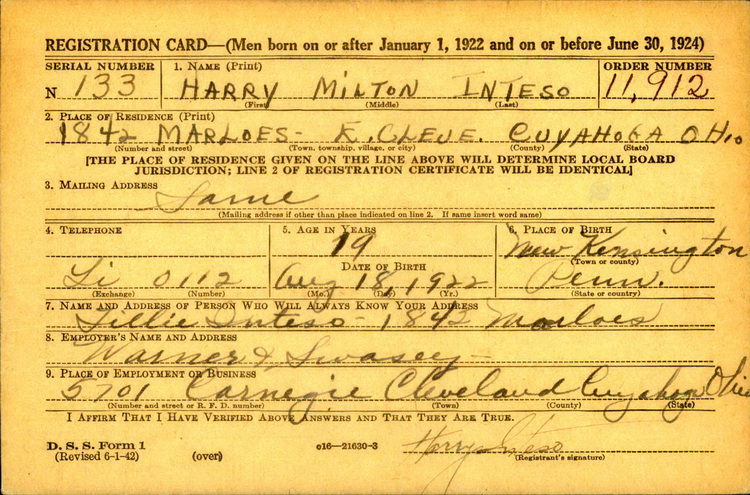 REGISTRATION CARD—(Men born on or after January 1, 1922 and on or before June 30, 1924)
SERIAL NUMBER 1. NAME (Print) ORDER NUMBER
N 133 HARRY MILTON INTESO 11,912
(First) (Middle) (Last)
2. PLACE OF RESIDENCE (Print)
1842 MARLOES - E. CLEVE. CUYAHOGA OHIO
(Number and street) (Town, township, village, or city) (County) (State)
[THE PLACE OF RESIDENCE GIVEN ON THE LINE ABOVE WILL DETERMINE LOCAL BOARD
JURISDICTION; LINE 2 OF REGISTRATION CERTIFICATE WILL BE IDENTICAL]
3. MAILING ADDRESS
Same
(Mailing address if other than place indicated on line 2. If same insert word same)
4. TELEPHONE 5. AGE IN YEARS 6. PLACE OF BIRTH
19 New Kensington
DATE OF BIRTH (Town or county)
Li 0112 Aug 18, 1922 Penn.
(Exchange) (Number) (Mo.) (Day) (Yr.) (State or country)
7. NAME AND ADDRESS OF PERSON WHO WILL ALWAYS KNOW YOUR ADDRESS
Lillie Inteso - 1842 Marloes
8. EMPLOYER'S NAME AND ADDRESS
Warner & Swasey -
9. PLACE OF EMPLOYMENT OR BUSINESS
5701 Carnegie Cleveland Cuyahoga Ohio
(Number and street or R. F. D. number) (Town) (County) (State)
I AFFIRM THAT I HAVE VERIFIED ABOVE ANSWERS AND THAT THEY ARE TRUE.
D. S. S. Form 1
(Revised 6-1-42) (over) c16—21630-3 Harry Inteso
(Registrant's signature)